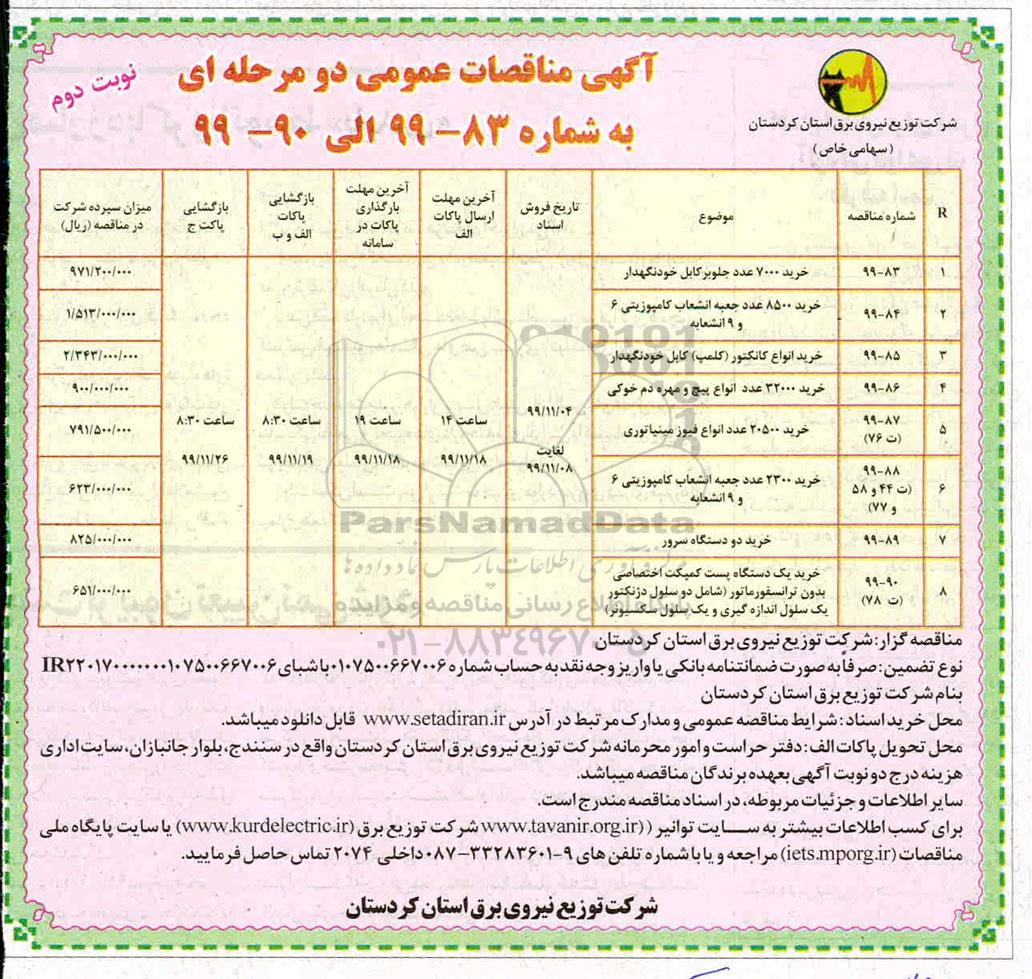 آگهی مناقصات عمومی دو مرحله ای
به شماره ۸۳-۹۹ الی ۹۰-۹۹
نوبت دوم
شرکت توزیع نیروی برق استان کردستان
(سهامی خاص)
R | شماره مناقصه | موضوع | تاریخ فروش اسناد | آخرین مهلت ارسال پاکات الف | آخرین مهلت بارگذاری پاکات در سامانه | بازگشایی پاکات الف و ب | بازگشایی پاکت ج | میزان سپرده شرکت در مناقصه (ریال)
۱ | ۹۹-۸۳ | خرید ۷۰۰۰ عدد جلوبر کابل خودنگهدار | ۹۷۱/۲۰۰/۰۰۰
۲ | ۹۹-۸۴ | خرید ۸۵۰۰ عدد جعبه انشعاب کامپوزیتی ۶ و ۹ انشعابه | ۱/۵۱۳/۰۰۰/۰۰۰
۳ | ۹۹-۸۵ | خرید انواع کانکتور (کلمپ) کابل خودنگهدار | ۲/۳۴۳/۰۰۰/۰۰۰
۴ | ۹۹-۸۶ | خرید ۳۲۰۰۰ عدد انواع پیچ و مهره دم خوکی | ۹۰۰/۰۰۰/۰۰۰
۵ | ۹۹-۸۷ (ت ۷۶) | خرید ۲۰۵۰۰ عدد انواع فیوز مینیاتوری | ۷۹۱/۵۰۰/۰۰۰
۶ | ۹۹-۸۸ (ت ۴۴ و ۵۸ و ۷۷) | خرید ۲۳۰۰ عدد جعبه انشعاب کامپوزیتی ۶ و ۹ انشعابه | ۶۲۳/۰۰۰/۰۰۰
۷ | ۹۹-۸۹ | خرید دو دستگاه سرور | ۸۲۵/۰۰۰/۰۰۰
۸ | ۹۹-۹۰ (ت ۷۸) | خرید یک دستگاه پست کمپکت اختصاصی بدون ترانسفورماتور (شامل دو سلول دژنکتور یک سلول اندازه گیری و یک سلول سکسیونر) | ۶۵۱/۰۰۰/۰۰۰
۹۹/۱۱/۰۴ لغایت ۹۹/۱۱/۰۸ | ساعت ۱۴ ۹۹/۱۱/۱۸ | ساعت ۱۹ ۹۹/۱۱/۱۸ | ساعت ۸:۳۰ ۹۹/۱۱/۱۹ | ساعت ۸:۳۰ ۹۹/۱۱/۲۶
ParsNamadData
پایگاه اطلاع رسانی مناقصه و مزایده
۰۲۱-۸۸۳۴۹۶۷۰-۵
مناقصه گزار: شرکت توزیع نیروی برق استان کردستان
نوع تضمین: صرفا به صورت ضمانتنامه بانکی یا واریز وجه نقد به حساب شماره ۰۱۰۷۵۰۰۶۶۷۰۰۶ با شبای IR۲۲۰۱۷۰۰۰۰۰۰۰۱۰۷۵۰۰۶۶۷۰۰۶
بنام شرکت توزیع برق استان کردستان
محل خرید اسناد: شرایط مناقصه عمومی و مدارک مرتبط در آدرس www.setadiran.ir قابل دانلود میباشد.
محل تحویل پاکات الف: دفتر حراست و امور محرمانه شرکت توزیع نیروی برق استان کردستان واقع در سنندج، بلوار جانبازان، سایت اداری
هزینه درج دو نوبت آگهی بعهده برندگان مناقصه میباشد.
سایر اطلاعات و جزئیات مربوطه، در اسناد مناقصه مندرج است.
برای کسب اطلاعات بیشتر به سایت توانیر ((www.tavanir.org.ir شرکت توزیع برق (www.kurdelectric.ir) یا سایت پایگاه ملی
مناقصات (iets.mporg.ir) مراجعه و یا با شماره تلفن های ۹-۳۳۲۸۳۶۰۱-۰۸۷ داخلی ۲۰۷۴ تماس حاصل فرمایید.
شرکت توزیع نیروی برق استان کردستان